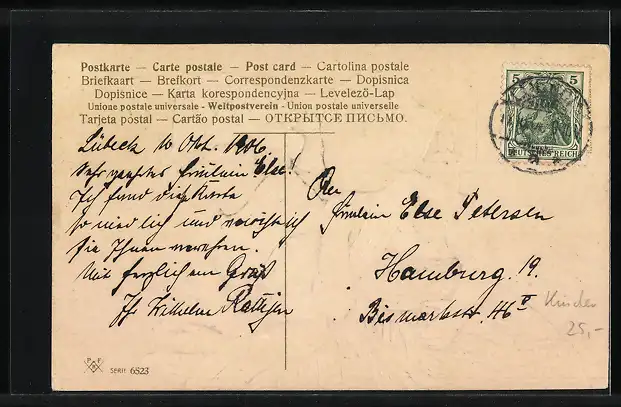 Postkarte — Carte postale — Post card — Cartolina postale
Briefkaart — Brefkort — Correspondenzkarte — Dopisnica
Dopisnice — Karta korespondencyjna — Levelező-Lap
Union postale universelle - Weltpostverein - Union postale universelle
Tarjeta postal — Cartão postal — ОТКРЫТСЕ ПИСЬМО.
Lübeck 10 Okt. 1906.
Sehr geehrtes Fräulein Else!
Ich fand diese Karte
so niedlich und möchte ich
sie Ihnen verehren.
Mit herzlichem Gruß
Ihr Wilhelm
An
Fräulein Else Petersen
Hamburg 19.
Bismarckstr. 46 II
5 5
DEUTSCHES REICH
Kinder
25,-
P F B
SERIE 6823